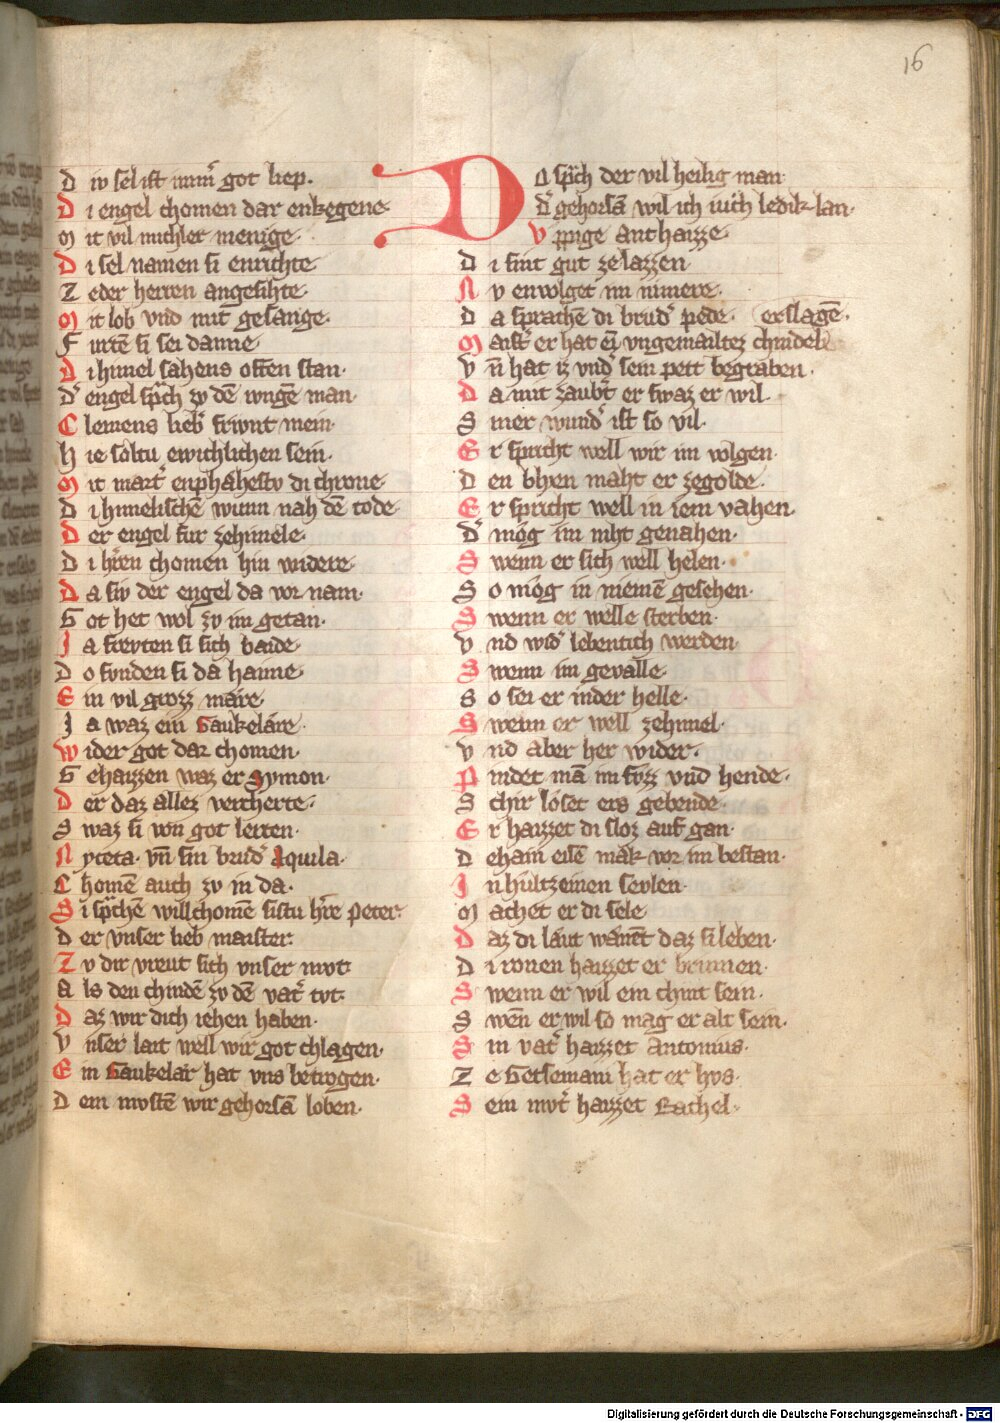 16
D iv sel ist nimm̄ got liep.
D i engel chomen dar enkegene.
M it vil michler menige.
D i sel namen si enrichte
Z eder herren angesihte.
M it lob vnd mit gesange.
F urtē si sei danne.
D i himel sahens offen stan.
D᷑ engel sp̄ch zv dē ivngē man.
C lemens lieb᷑ friwnt mein
H ie soltu ewichlichen sein.
M it mart᷑ enphahestv di chrone
D i himelischē wunn nah dē tode.
D er engel fur zehimele.
D i h᷑ren chomen hin widere.
D a siv der engel da vor nam.
G ot het wol zv im getan.
J a frevten si sich baide.
D o fvnden si da haime.
E in vil grozz märe.
J a waz ein Gaukeläre.
W ider got dar chomen.
G ehaizzen waz er Symon.
D er daz allez vercherte.
S waz si von got lerten.
N yceta. vn̄ sin brud᷑ Aquila.
C homē auch zv in da.
S i sp̄chē willchomē sistu h᷑re Peter.
D er vnser lieb maister.
Z v dir vreut sich vnser mvt
A ls den chindē zv dē vat᷑ tvt.
D az wir dich iehen haben.
V nser lait well wir got chlagen.
E in Gaukelär hat vns betrogen.
D em mvstē wir gehorsā loben.
D A sp̄ch der vil heilig man
D᷑ gehorsā wil ich iuch ledik lan.
V ppige Anthaizze.
D i sint gut ze lazzen
N v envolget im nimere.
D a sprachē di brud᷑ pede. erslagē.
M aist᷑ er hat ein vngemailtez chindel
V n̄ hat iz vnd᷑ sein pett begraben.
D a mit zaub᷑t er swaz er wil.
S iner wund᷑ ist so vil.
E r spricht well wir im volgen.
D en bhen maht er zegolde.
E r spricht well in iem vahen.
D᷑ mög im niht genahen.
S wenn er sich well helen.
S o mög in niemē gesehen.
S wenn er welle sterben.
V nd wid᷑ lebentich werden
S wenn im gevalle.
S o sei er inder helle.
S wenn er well zehimel.
V nd aber her wider.
P indet mā im fvzz vnd hende.
S chir löset ers gebende.
E r haizzet di sloz auf gan.
D ehain eisē mak vor im bestan.
J n hültzeinen sevlen.
M achet er di sele
D az di läut wänēt daz si leben.
D i ronen haizzet er brinnen.
S wenn er wil ein chint sein.
S wen̄ er wil so mag er alt sein.
S in vat᷑ haizzet Antonius.
Z e Getsemani hat er hvs.
S ein mvt᷑ haizzet Rachel.
Digitalisierung gefördert durch die Deutsche Forschungsgemeinschaft - DFG